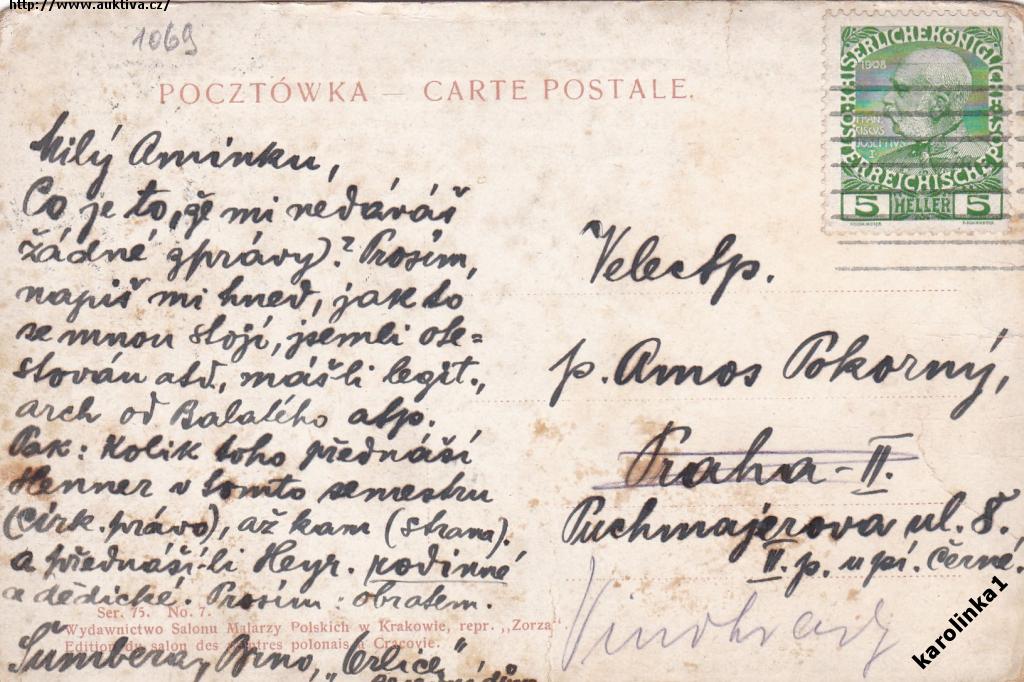 http://www.auktiva.cz/
1069
POCZTÓWKA — CARTE POSTALE.
Milý Aminku,
Co je to, že mi nedáváš
žádné zprávy? Prosím,
napiš mi hned, jak to
se mnou stojí, jsemli ote=
stován atd., mášli legit.,
arch od Balatého atp.
Pak: Kolik toho přednáší
Henner v tomto semestru
(církv. právo), až kam (strana).
a přednáší-li Heyr. rodinné
a dědické. Prosím: obratem.
Šumbera, Brno, „Orlice"
Ser. 75. No. 7.
Wydawnictwo Salonu Malarzy Polskich w Krakowie, repr. „Zorza"
Edition du salon des peintres polonais a Cracovie.
KAISERLICHE KÖNIGLICHE ÖSTERREICHISCHE POST
1908
FRAN
CISCVS
IOSEPHVS
I
5 HELLER 5
Velectp.
p. Amos Pokorný,
Praha-II.
Puchmajerova ul. 8.
II. p. u pí. Černé.
Vinohrady
karolinka1